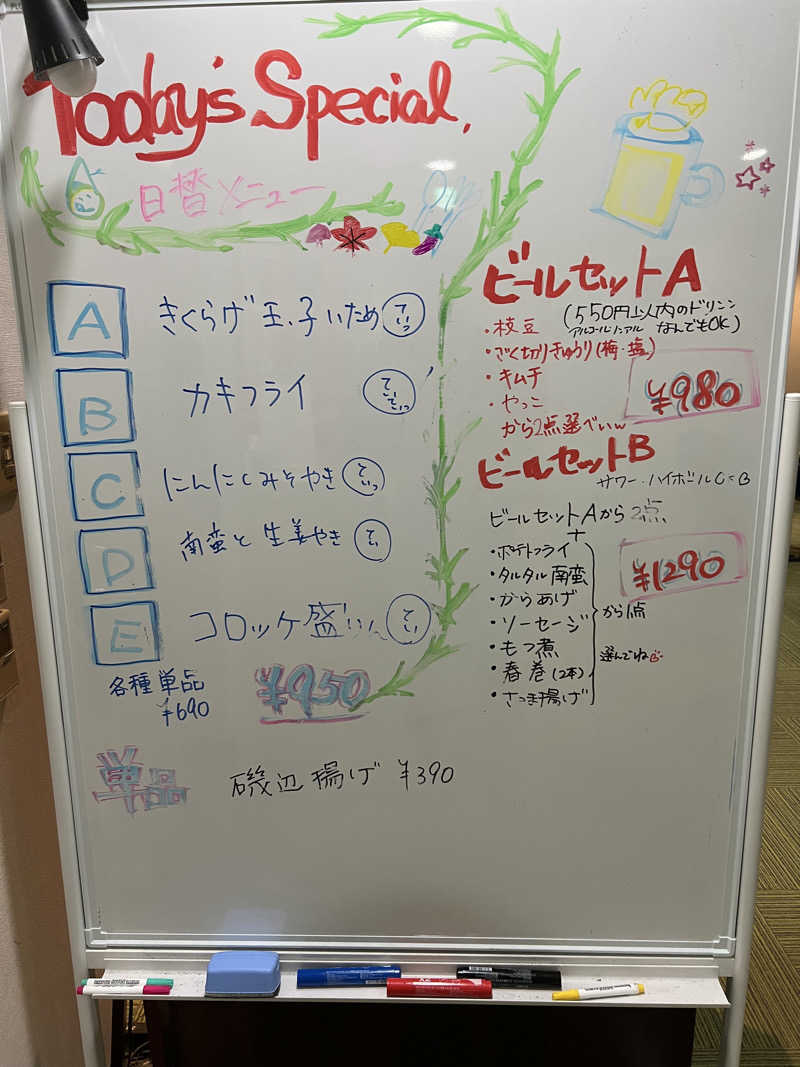 Today's Special.
日替メニュー
A きくらげ玉子いため
B カキフライ
C にんにくみそやき
D 南蛮と生姜やき
E コロッケ盛
各種単品
¥690
¥950
単品
磯辺揚げ ¥390
ビールセットA
(550円以内のドリンク
なんでもOK)
・枝豆
・ざく切りきゅうり(梅・塩)
・キムチ
・やっこ
から2点選べ
¥980
ビールセットB
サワー・ハイボール
ビールセットAから2点
+
・ポテトフライ
・タルタル南蛮
・からあげ
・ソーセージ
・もつ煮
・春巻(2本)
・さつま揚げ
から1点
選んでね
¥1290